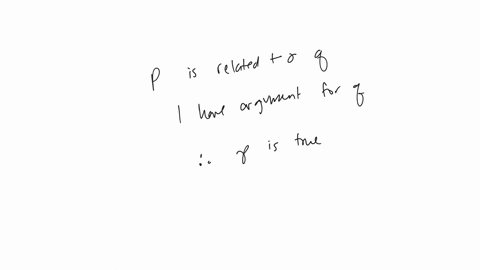 P is related to q
I have argument for q
∴ p is true